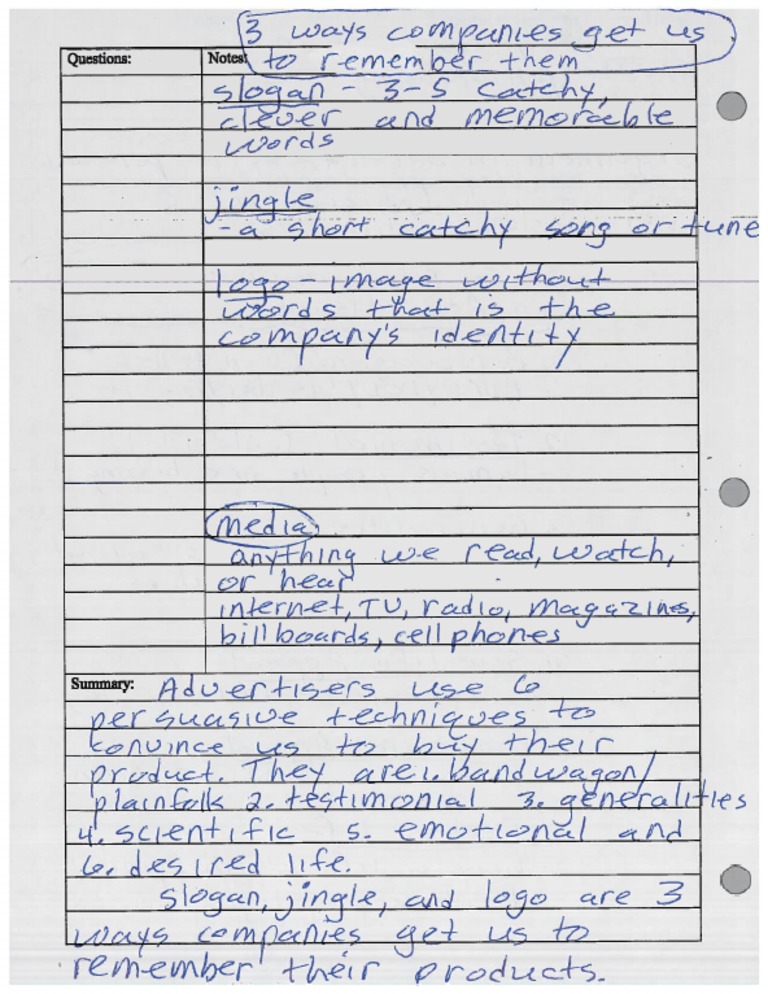 3 ways companies get us
to remember them
Questions:
Notes:
slogan - 3-5 catchy,
clever and memorable
words
jingle
- a short catchy song or tune
logo - image without
words that is the
company's identity
media
anything we read, watch,
or hear
internet, TV, radio, magazines,
billboards, cell phones
Summary: Advertisers use 6
persuasive techniques to
convince us to buy their
product. They are 1. bandwagon/
plainfolk 2. testimonial 3. generalities
4. scientific 5. emotional and
6. desired life.
slogan, jingle, and logo are 3
ways companies get us to
remember their products.